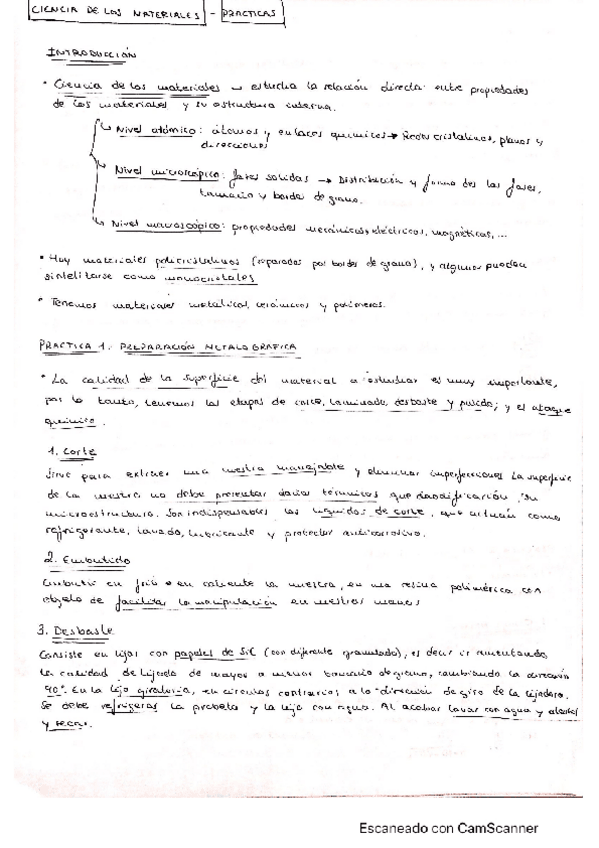 CIENCIA DE LOS MATERIALES - PRACTICAS
INTRODUCCIÓN
• Ciencia de los materiales → estudia la relación directa entre propiedades
de los materiales y su estructura interna.
↳ Nivel atómico: átomos y enlaces químicos → Redes cristalinas, planos y
direcciones
↳ Nivel microscópico: fases solidas → Distribución y forma de las fases,
tamaño y borde de grano.
↳ Nivel macroscópico: propiedades mecánicas, eléctricas, magnéticas, ...
• Hay materiales policristalinos (separados por bordes de grano), y algunos pueden
sintetizarse como monocristales
• Tenemos materiales metálicos, cerámicos y polímeros.
PRACTICA 1. PREPARACIÓN METALOGRAFICA
• La calidad de la superficie del material a estudiar es muy importante,
por lo tanto, tenemos las etapas de corte, desbaste y pulido; y el ataque
químico.
1. Corte
Sirve para extraer una muestra manejable y eliminar imperfecciones. La superficie
de la muestra no debe presentar daños térmicos que su
microestructura. Son indispensables los líquidos de corte, que actúan como
refrigerante, lavado, lubricante y protector anticorrosivo.
2. Embutido
Embutir en frío o en caliente la muestra, en una resina polimérica con
objeto de facilitar la manipulación en nuestras manos
3. Desbaste
Consiste en lijar con papeles de SiC (con diferente granulado), es decir ir aumentando
la calidad de lijado de mayor a menor tamaño de grano, cambiando la dirección
90°. En la lija giratoria, en círculos contrarios a la dirección de giro de la lijadora.
Se debe refrigerar la probeta y la lija con agua. Al acabar lavar con agua y alcohol
y secar.
Escaneado con CamScanner